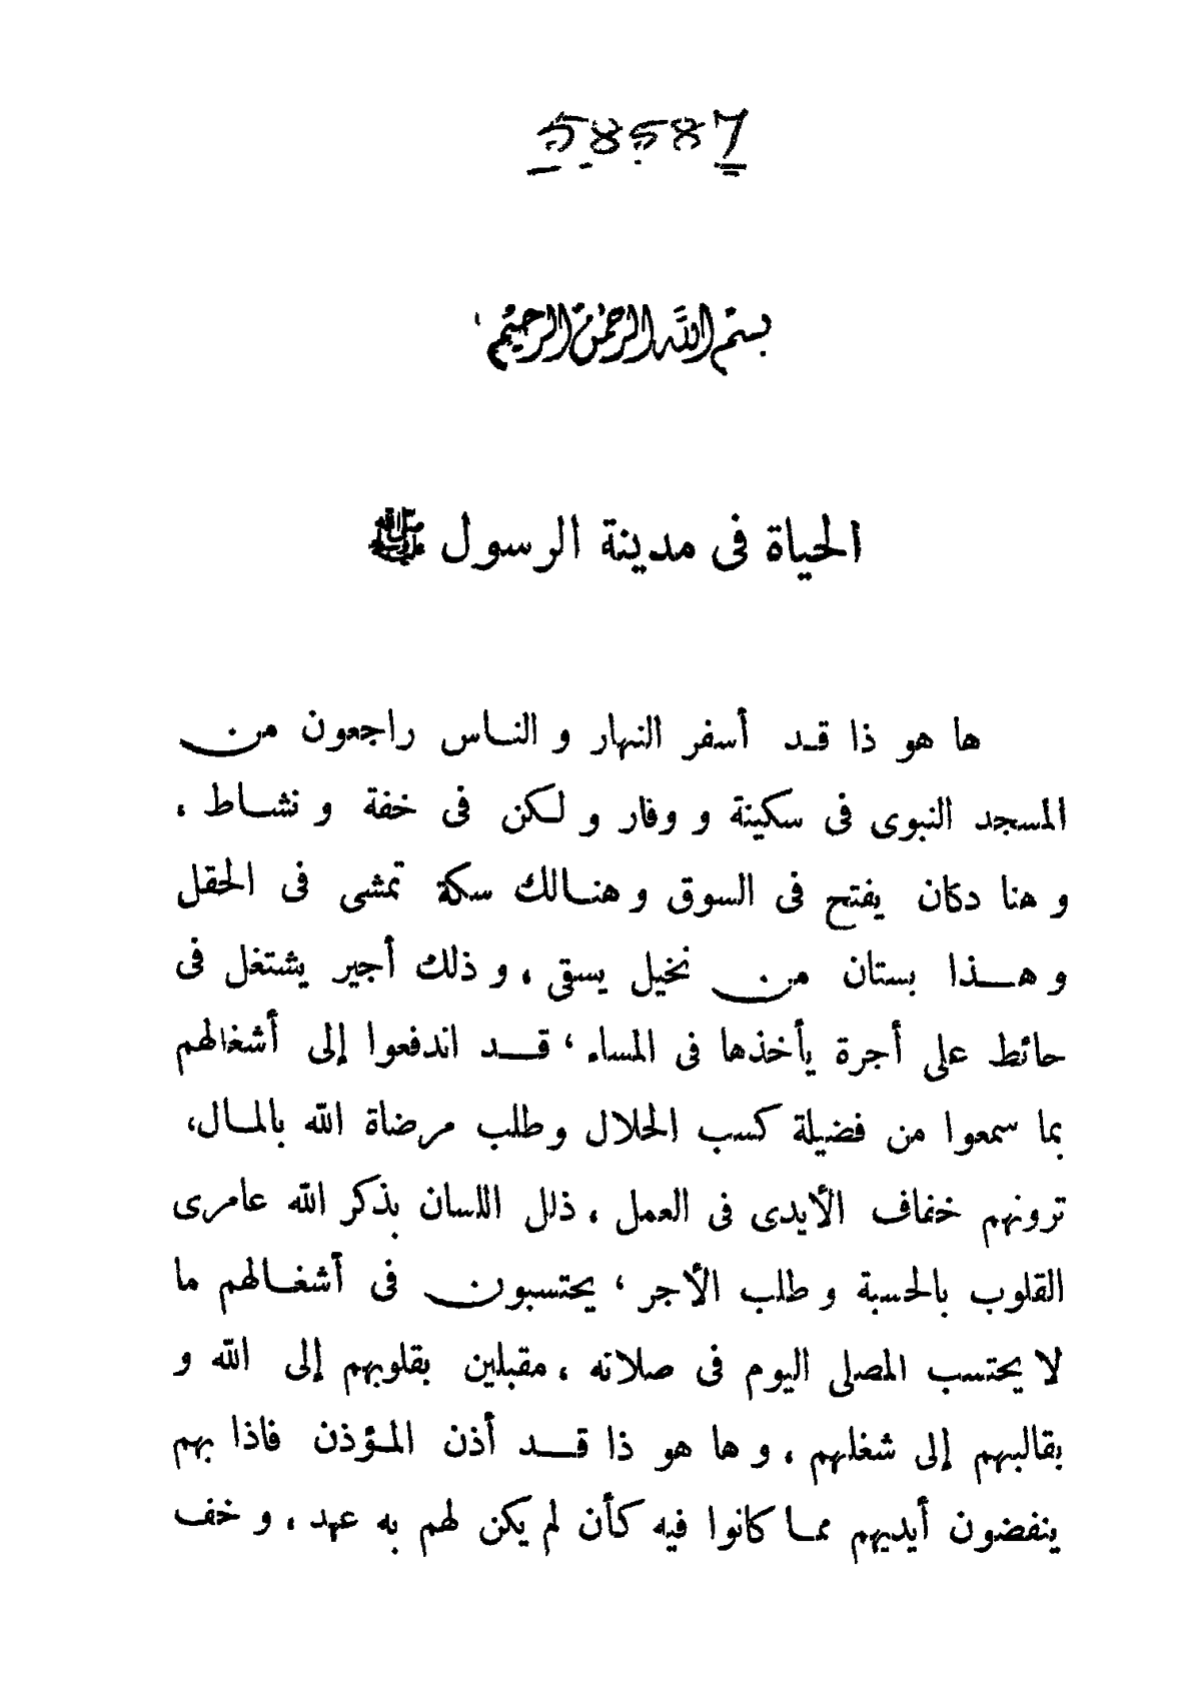 58587
بسم الله الرحمن الرحيم
الحياة فى مدينة الرسول ﷺ
ها هو ذا قد أسفر النهار و الناس راجعون من
المسجد النبوى فى سكينة و وقار و لكن فى خفة و نشاط ،
و هنا دكان يفتح فى السوق و هنالك سكة تمشى فى الحقل
و هذا بستان من نخيل يسقى ، و ذلك أجير يشتغل فى
حائط على أجرة يأخذها فى المساء ، قد اندفعوا إلى أشغالهم
بما سمعوا من فضيلة كسب الحلال و طلب مرضاة الله بالمال،
ترونهم خفاف الأيدى فى العمل ، ذلل اللسان بذكر الله عامرى
القلوب بالحسبة و طلب الأجر ، يحتسبون فى أشغالهم ما
لا يحتسب المصلى اليوم فى صلاته ، مقبلين بقلوبهم إلى الله و
بقالبهم إلى شغلهم ، و ها هو ذا قد أذن المؤذن فاذا بهم
ينفضون أيديهم مما كانوا فيه كأن لم يكن لهم به عهد ، و خف